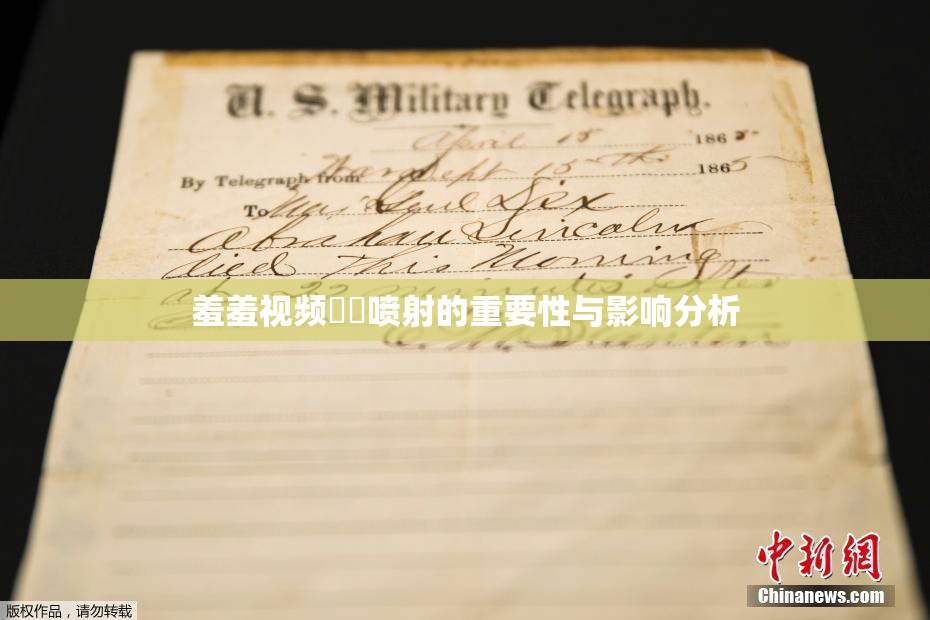 U. S. Military Telegraph.
April 15 1865
By Telegraph from War Dept 15th 1865
To Maj Genl Dix
Abraham Lincoln
died This Morning
at 22 minutes after
羞羞视频喷射的重要性与影响分析
E. M. Stanton
中新网
Chinanews.com
版权作品，请勿转载